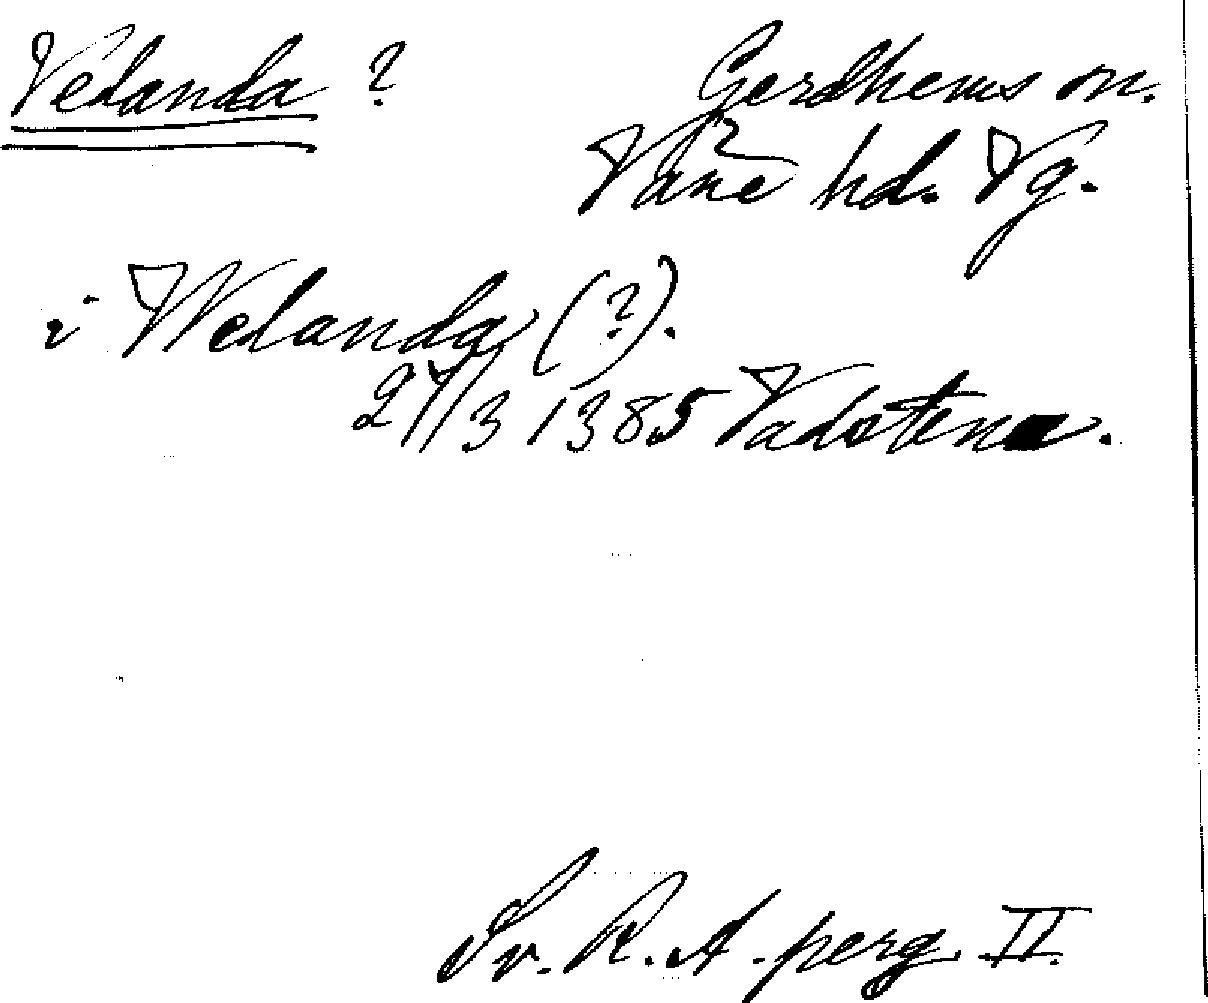 Vedanda ? Gerdhems sn.
Väne hd. Vg.
i Wedanda (?).
27/3 1385 Vadstena.
Sv. R. A. perg. II.